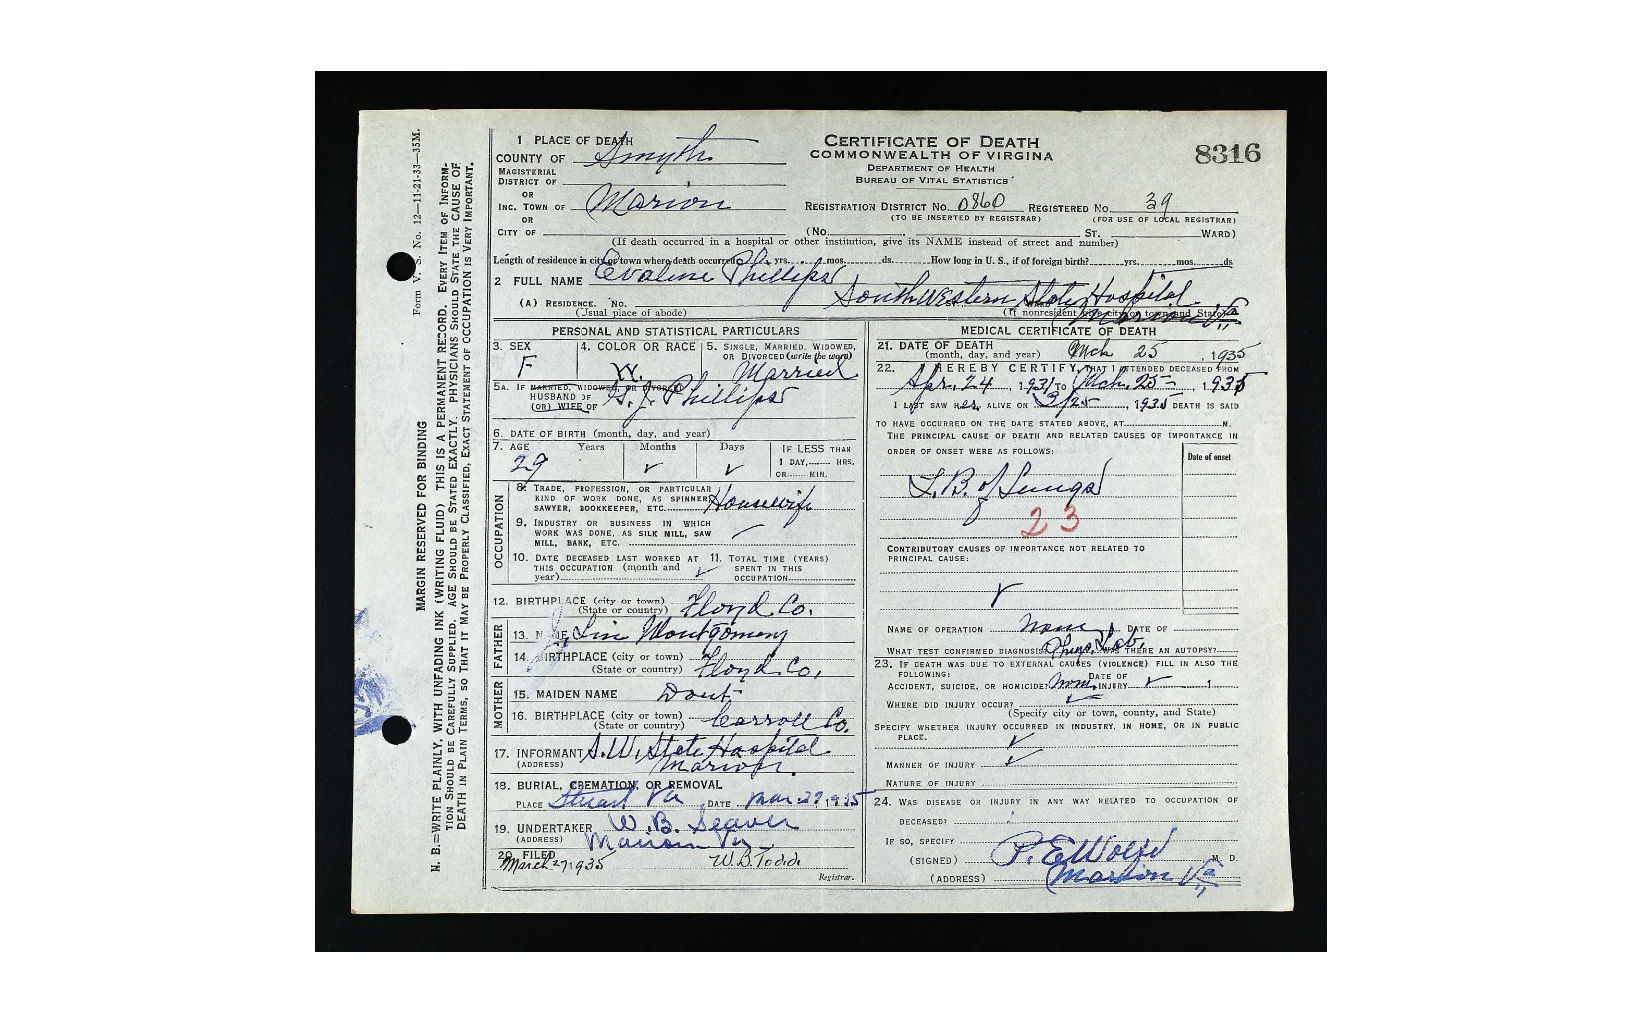 Form V. S. No. 12—11-21-33—35M.
MARGIN RESERVED FOR BINDING
N. B.—WRITE PLAINLY, WITH UNFADING INK (WRITING FLUID) THIS IS A PERMANENT RECORD. EVERY ITEM OF INFORM-
TION SHOULD BE CAREFULLY SUPPLIED. AGE SHOULD BE STATED EXACTLY. PHYSICIANS SHOULD STATE THE CAUSE OF
DEATH IN PLAIN TERMS, SO THAT IT MAY BE PROPERLY CLASSIFIED. EXACT STATEMENT OF OCCUPATION IS VERY IMPORTANT.
1 PLACE OF DEATH
COUNTY OF Smyth
MAGISTERIAL
DISTRICT OF
OR
INC. TOWN OF Marion
OR
CITY OF
CERTIFICATE OF DEATH
COMMONWEALTH OF VIRGINIA
DEPARTMENT OF HEALTH
BUREAU OF VITAL STATISTICS
8316
REGISTRATION DISTRICT NO. 0860 REGISTERED NO. 39
(TO BE INSERTED BY REGISTRAR) (FOR USE OF LOCAL REGISTRAR)
(No. ST. WARD)
(If death occurred in a hospital or other institution, give its NAME instead of street and number)
Length of residence in city or town where death occurred yrs. mos. ds. How long in U. S., if of foreign birth? yrs. mos. ds
2 FULL NAME Evaline Phillips
(A) RESIDENCE. No. Southwestern State Hospital
(Usual place of abode) (If nonresident give city or town and State) Marion Va
PERSONAL AND STATISTICAL PARTICULARS
3. SEX F
4. COLOR OR RACE W.
5. SINGLE, MARRIED, WIDOWED,
OR DIVORCED (write the word)
Married
5A. IF MARRIED, WIDOWED, OR DIVORCED
HUSBAND OF
(OR) WIFE OF Phillips
6. DATE OF BIRTH (month, day, and year)
7. AGE Years Months Days IF LESS THAN
1 DAY, HRS.
OR MIN.
29
OCCUPATION
8. TRADE, PROFESSION, OR PARTICULAR
KIND OF WORK DONE, AS SPINNER,
SAWYER, BOOKKEEPER, ETC. Housewife
9. INDUSTRY OR BUSINESS IN WHICH
WORK WAS DONE, AS SILK MILL, SAW
MILL, BANK, ETC.
10. DATE DECEASED LAST WORKED AT
THIS OCCUPATION (month and
year)
11. TOTAL TIME (YEARS)
SPENT IN THIS
OCCUPATION
12. BIRTHPLACE (city or town)
(State or country) Floyd Co.
FATHER
13. NAME Montgomery
14. BIRTHPLACE (city or town)
(State or country) Floyd Co.
MOTHER
15. MAIDEN NAME
16. BIRTHPLACE (city or town)
(State or country) Carroll Co.
17. INFORMANT S.W. State Hospital
(ADDRESS) Marion.
18. BURIAL, CREMATION, OR REMOVAL
PLACE Stuart Va DATE Mar 27, 1935
19. UNDERTAKER W. B. Seaver
(ADDRESS) Marion Va
20. FILED
March 27 1935 W. B. Todd
Registrar.
MEDICAL CERTIFICATE OF DEATH
21. DATE OF DEATH
(month, day, and year) Mch 25, 1935
22. I HEREBY CERTIFY, THAT I ATTENDED DECEASED FROM
Apr. 24, 1931 TO Mch. 25, 1935
I LAST SAW her ALIVE ON 3/25, 1935 DEATH IS SAID
TO HAVE OCCURRED ON THE DATE STATED ABOVE, AT M.
THE PRINCIPAL CAUSE OF DEATH AND RELATED CAUSES OF IMPORTANCE IN
ORDER OF ONSET WERE AS FOLLOWS:
Date of onset
T.B. of Lungs
23
CONTRIBUTORY CAUSES OF IMPORTANCE NOT RELATED TO
PRINCIPAL CAUSE:
NAME OF OPERATION None DATE OF
WHAT TEST CONFIRMED DIAGNOSIS? Phys. Lab. WAS THERE AN AUTOPSY?
23. IF DEATH WAS DUE TO EXTERNAL CAUSES (VIOLENCE) FILL IN ALSO THE
FOLLOWING:
ACCIDENT, SUICIDE, OR HOMICIDE? DATE OF INJURY 1
WHERE DID INJURY OCCUR?
(Specify city or town, county, and State)
SPECIFY WHETHER INJURY OCCURRED IN INDUSTRY, IN HOME, OR IN PUBLIC
PLACE.
MANNER OF INJURY
NATURE OF INJURY
24. WAS DISEASE OR INJURY IN ANY WAY RELATED TO OCCUPATION OF
DECEASED?
IF SO, SPECIFY
(SIGNED) M. D.
(ADDRESS) Marion Va